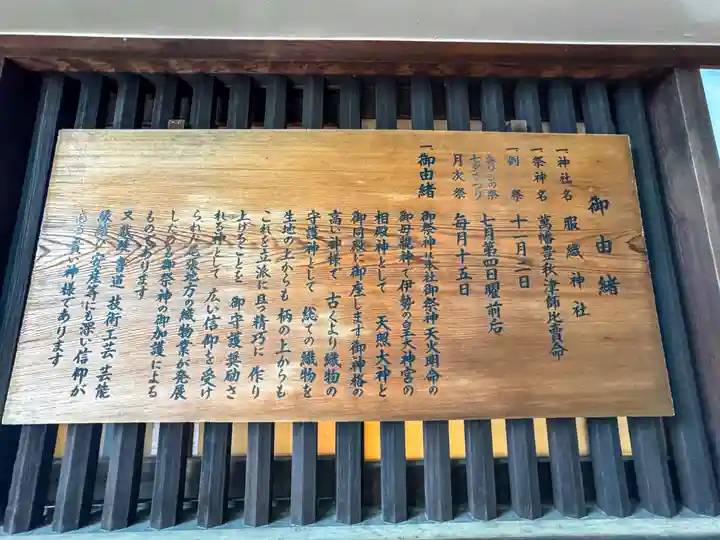 御由緒
一神社名 服織神社
一祭神名 萬幡豊秋津師比賣命
一例祭 十一月二日
七夕まつり 七月第四日曜前后
月次祭 毎月十五日
一御由緒
御祭神は本社御祭神天火明命の
御母親神で伊勢の皇大神宮の
相殿神として 天照大神と
御同殿に御座します御神格の
高い神様で 古くより織物の
守護神として 総ての織物を
生地の上からも 柄の上からも
これを立派に且つ精巧に 作り
上げることを 御守護奨励さ
れる神として 広い信仰を受け
られ尾張地方の織物業が発展
したのも御祭神の御加護による
ものであります
又 書道 技術工芸 芸能
縁談 安産等にも深い信仰が
の高い神様であります